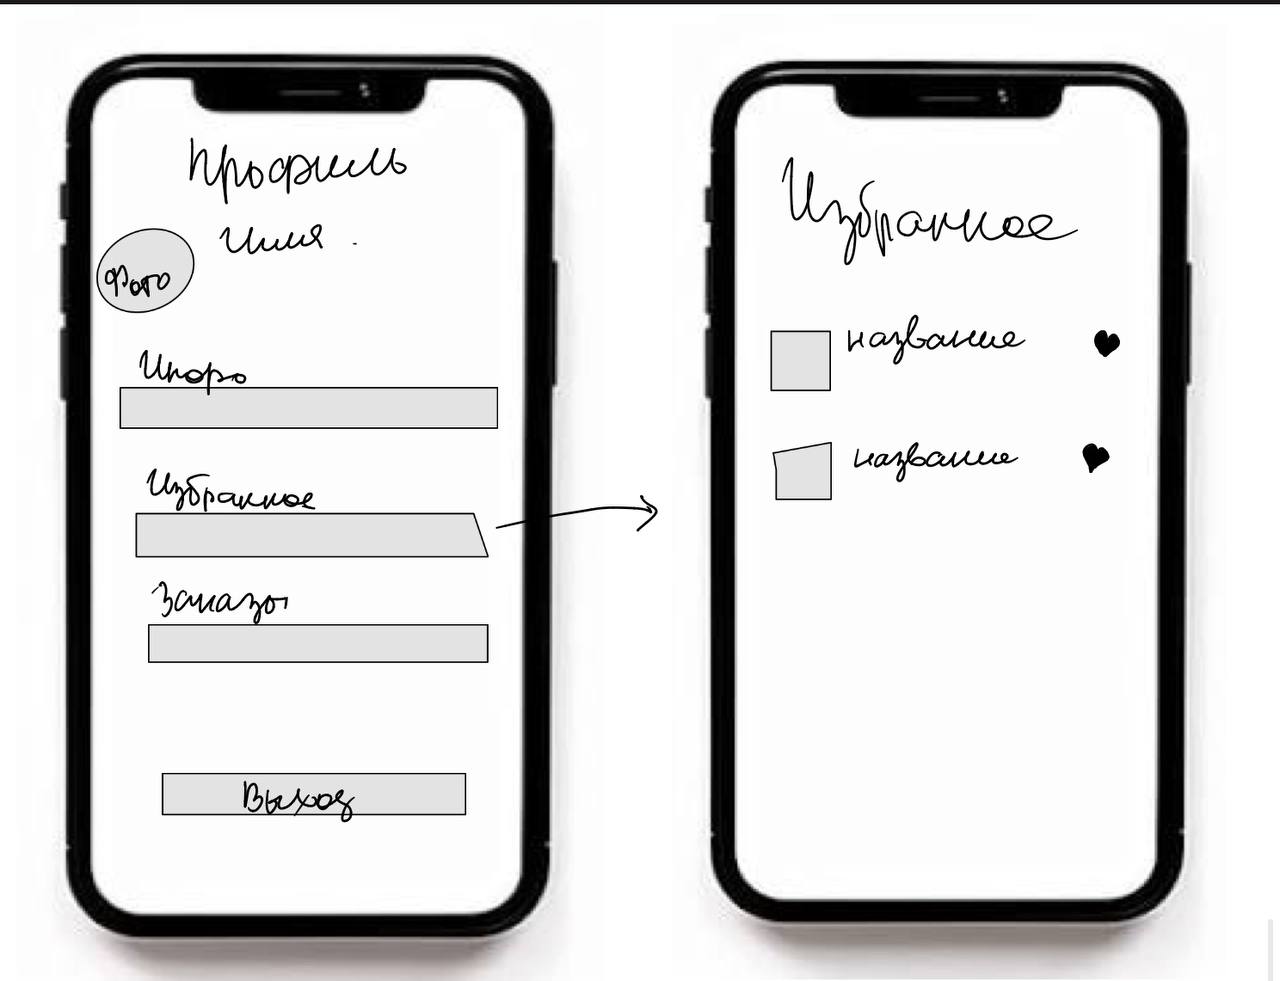 Профиль
Имя
Фото
Инфо
Избранное
Заказы
Выход
Избранное
название
название